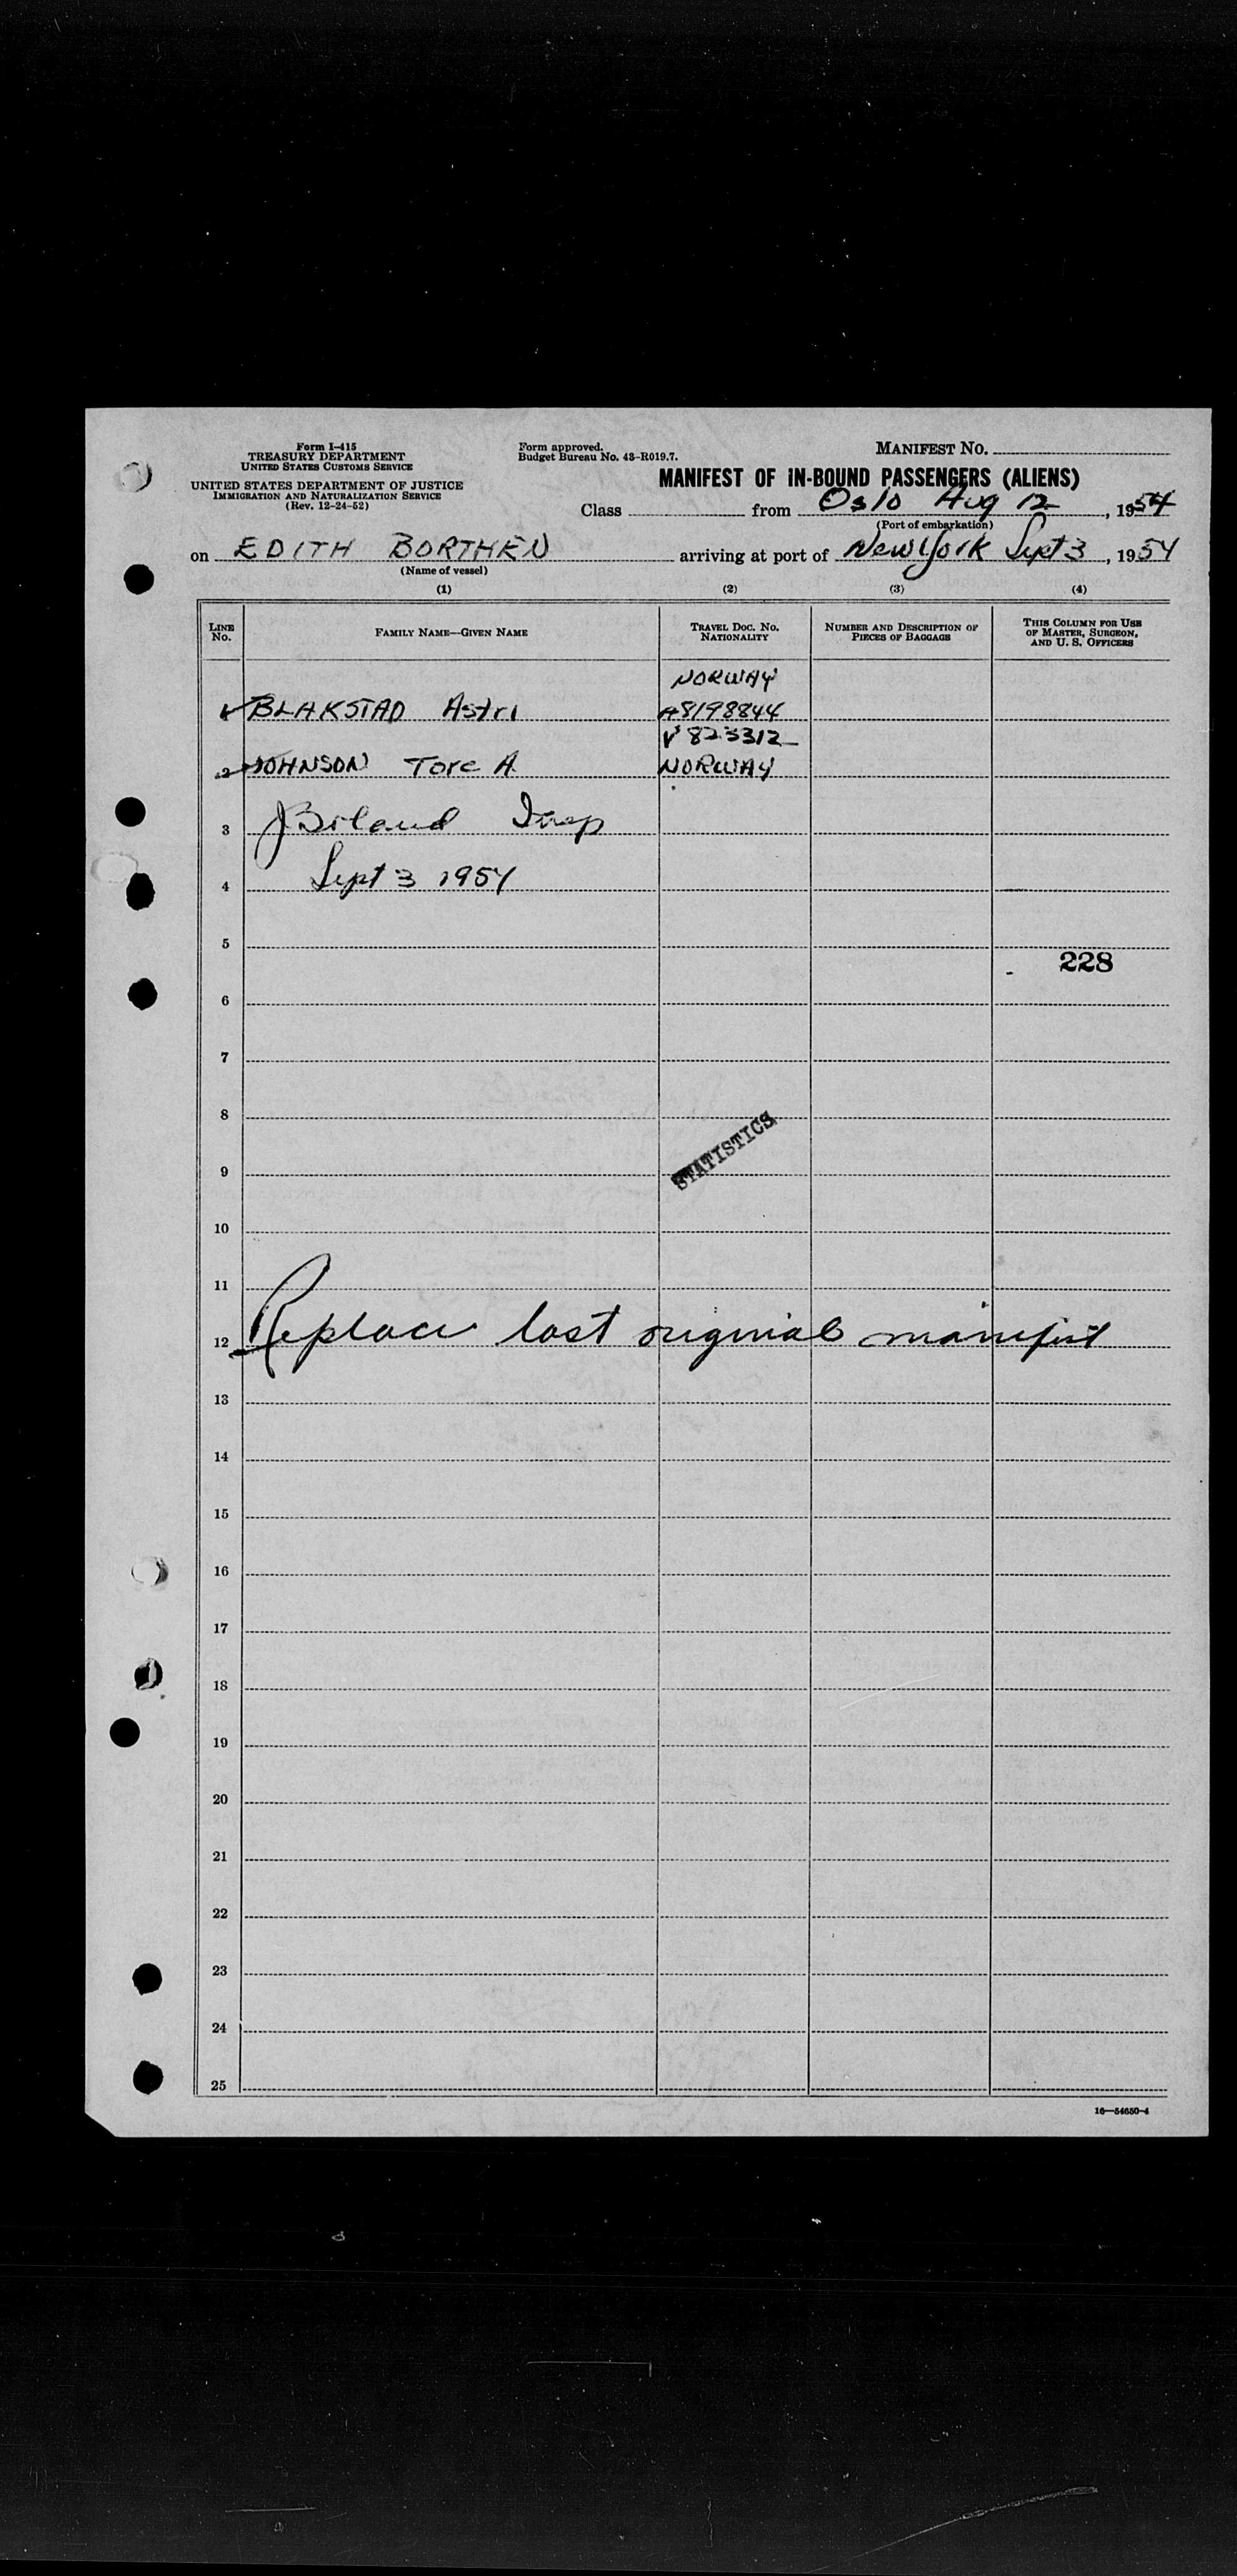 Form I-415
TREASURY DEPARTMENT
UNITED STATES CUSTOMS SERVICE
UNITED STATES DEPARTMENT OF JUSTICE
IMMIGRATION AND NATURALIZATION SERVICE
(Rev. 12-24-52)
Form approved.
Budget Bureau No. 43-R019.7.
MANIFEST NO.
MANIFEST OF IN-BOUND PASSENGERS (ALIENS)
Class from Oslo Aug 12, 1954
(Port of embarkation)
on EDITH BORTHEN arriving at port of New York Sept 3, 1954
(Name of vessel)
(1) (2) (3) (4)
LINE NO. FAMILY NAME—GIVEN NAME TRAVEL DOC. NO. NATIONALITY NUMBER AND DESCRIPTION OF PIECES OF BAGGAGE THIS COLUMN FOR USE OF MASTER, SURGEON, AND U. S. OFFICERS
NORWAY
1 BLAKSTAD Astri A8198844
V823312
2 JOHNSON Tore A. NORWAY
3 Insp
4 Sept 3 1954
5
228
6
7
8
STATISTICS
9
10
11
12 Replace lost original manifest
13
14
15
16
17
18
19
20
21
22
23
24
25
16—54650-4